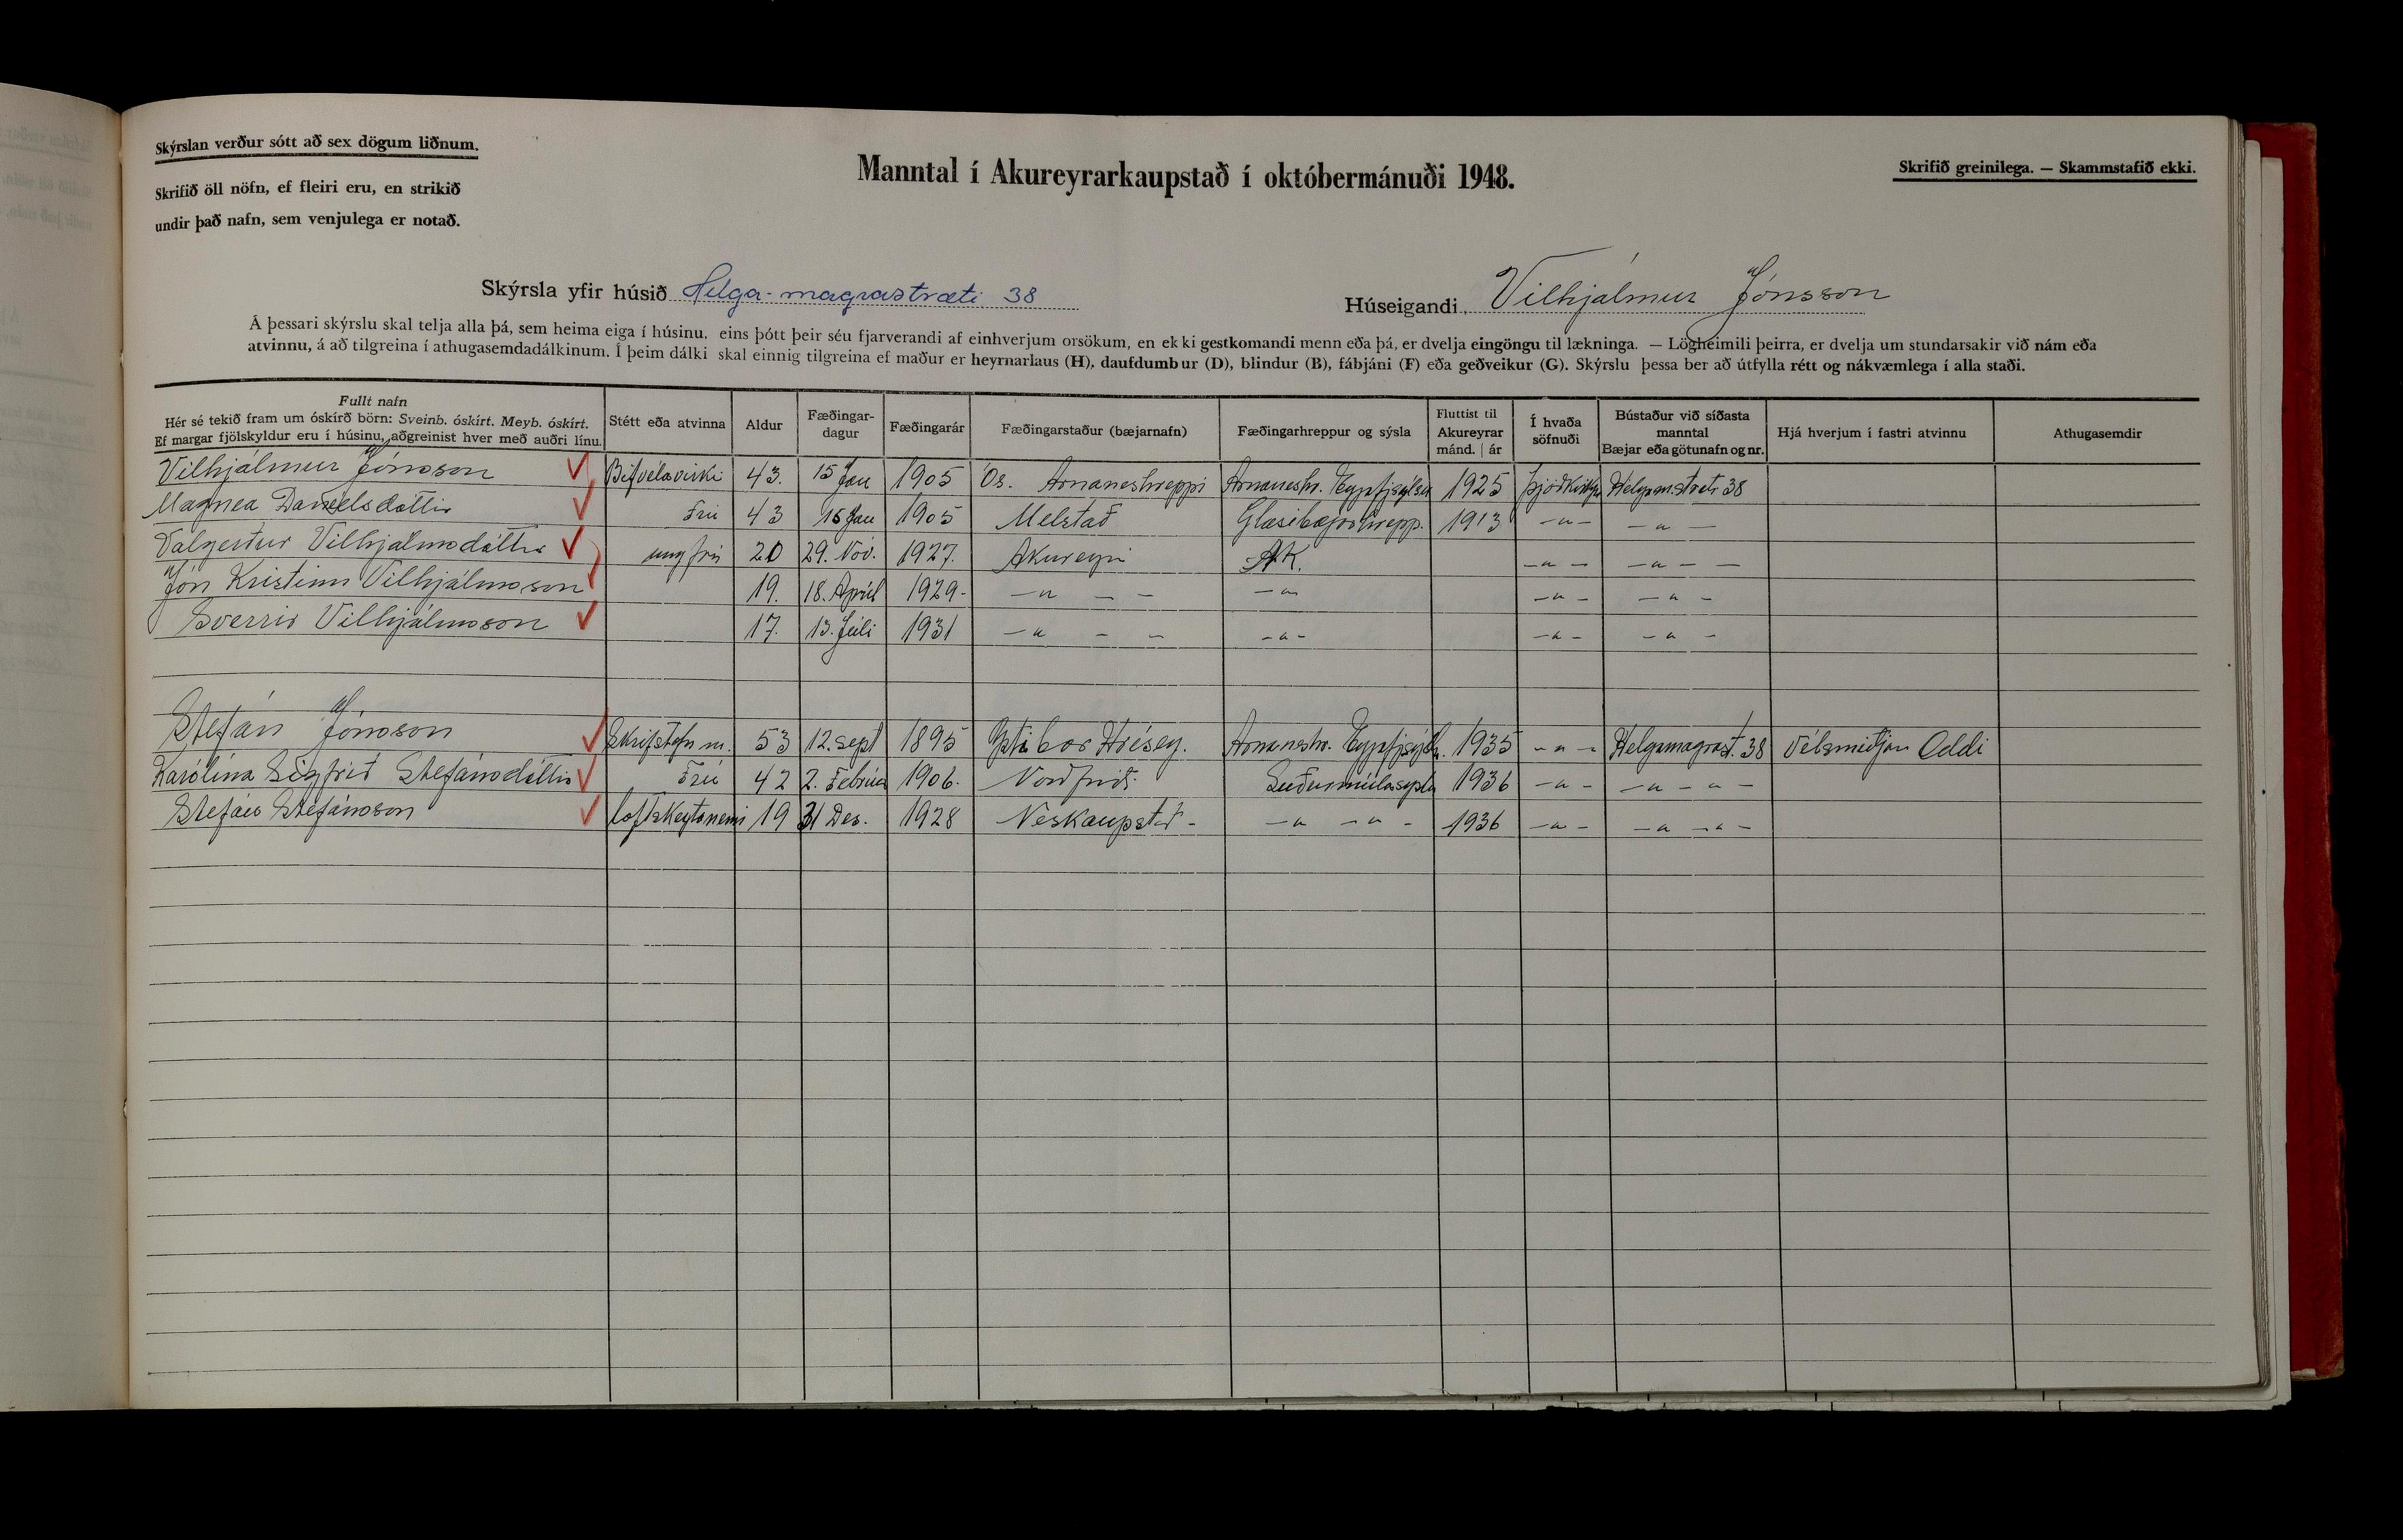 Skýrslan verður sótt að sex dögum liðnum.
Skrifið öll nöfn, ef fleiri eru, en strikið
undir það nafn, sem venjulega er notað.
Manntal í Akureyrarkaupstað í októbermánuði 1948.
Skrifið greinilega. — Skammstafið ekki.
Skýrsla yfir húsið Helga-magrastræti 38
Húseigandi Vilhjálmur Jónsson
Á þessari skýrslu skal telja alla þá, sem heima eiga í húsinu, eins þótt þeir séu fjarverandi af einhverjum orsökum, en ekki gestkomandi menn eða þá, er dvelja eingöngu til lækninga. — Lögheimili þeirra, er dvelja um stundarsakir við nám eða
atvinnu, á að tilgreina í athugasemdadálkinum. Í þeim dálki skal einnig tilgreina ef maður er heyrnarlaus (H), daufdumbur (D), blindur (B), fábjáni (F) eða geðveikur (G). Skýrslu þessa ber að útfylla rétt og nákvæmlega í alla staði.
Fullt nafn
Hér sé tekið fram um óskírð börn: Sveinb. óskírt. Meyb. óskírt.
Ef margar fjölskyldur eru í húsinu, aðgreinist hver með auðri línu.
Stétt eða atvinna
Aldur
Fæðingar-
dagur
Fæðingarár
Fæðingarstaður (bæjarnafn)
Fæðingarhreppur og sýsla
Fluttist til
Akureyrar
mánd. | ár
Í hvaða
söfnuði
Bústaður við síðasta
manntal
Bæjar eða götunafn og nr.
Hjá hverjum í fastri atvinnu
Athugasemdir
Vilhjálmur Jónsson Bifvélavirki 43. 15 Jan 1905 Ós. Arnaneshreppi Arnaneshr. 1925 Helgam.stræti 38
Magnea Daníelsdóttir Frú 43 15 Jan 1905 Melstað Glæsibæjarhrepp. 1913 —"— —"—
Valgerður Vilhjálmsdóttir ungfrú 20 29. Nóv. 1927. Akureyri AK. —"— —"— —
Jón Kristinn Vilhjálmsson 19. 18. Apríl 1929- —"— — —"— —"— —"—
Sverrir Vilhjálmsson 17. 13. Júlí 1931 —"— — —"— —"— —"—
Stefán Jónsson Skrifstofu m. 53 12. sept 1895 Hrísey. Arnaneshr. 1935 —"— Helgamagrast. 38 Vélsmiðjan Oddi
Karólína Sigfríð Stefánsdóttir Frú 42 2. Febrúar 1906. Norðfirði. Suðurmúlasýslu 1936 —"— —"—"—
Stefán Stefánsson loftskeytanemi 19 31 Des. 1928 Neskaupstað - —"— —"— 1936 —"— —"— —"—